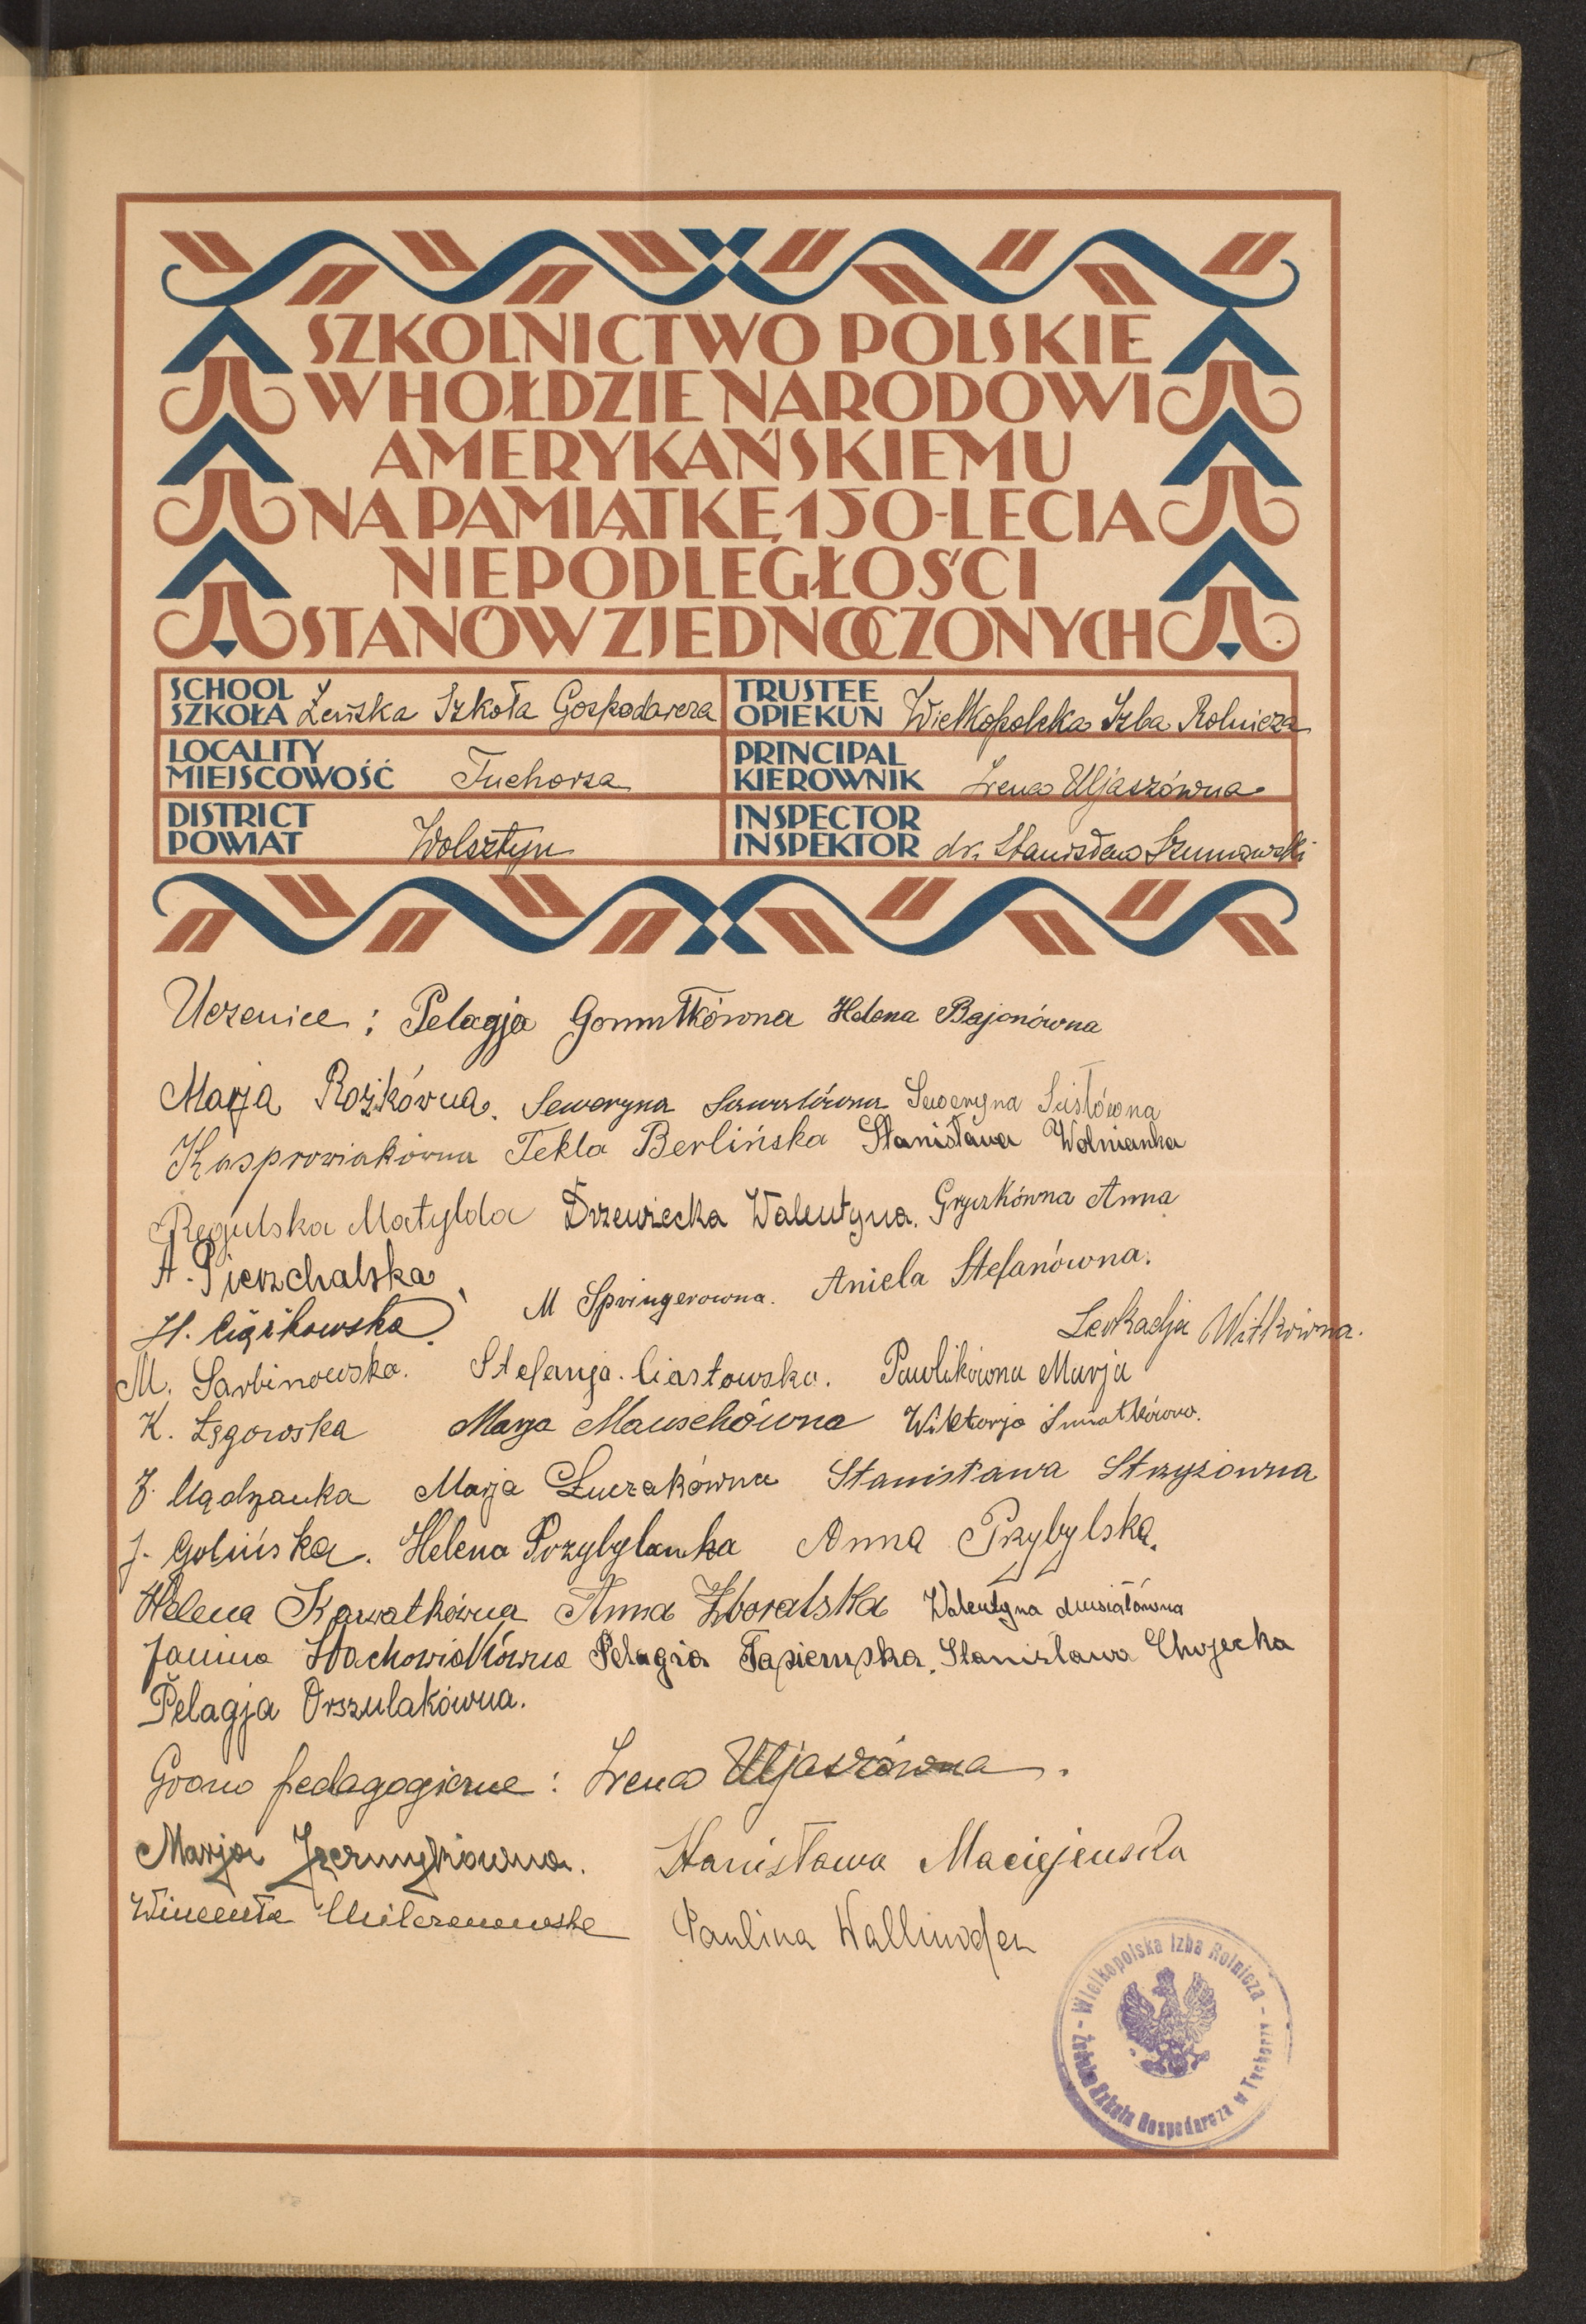 SZKOLNICTWO POLSKIE
W HOŁDZIE NARODOWI
AMERYKAŃSKIEMU
NA PAMIĄTKĘ 150-LECIA
NIEPODLEGŁOŚCI
STANÓW ZJEDNOCZONYCH
SCHOOL
SZKOŁA Żeńska Szkoła Gospodarcza
TRUSTEE
OPIEKUN Wielkopolska Izba Rolnicza
LOCALITY
MIEJSCOWOŚĆ Tuchorza
PRINCIPAL
KIEROWNIK Irena Uljaszówna
DISTRICT
POWIAT Wolsztyn
INSPECTOR
INSPEKTOR dr. Stanisław Szumowski
Uczenice: Pelagja Gomułkówna Helena Bajonówna
Marja Rożkówna. Seweryna Seweryna Susłówna
Kasprowiakówna Tekla Berlińska Stanisława Wolnianka
Regulska Matylda Drzewiecka Walentyna. Gryszkówna Anna
A. Pierzchalska
M Springerowna. Aniela Stefanówna.
H. Ciążkowska
Leokadja Witkówna.
M. Sarbinowska. Stefanja Ciastowska. Pawlikówna Marja
K. Łęgowska Marja Mauschówna Wiktorja
J. Mądzanka Marja Łuczakówna Stanisława Stryzowna
J. Golińska. Helena Przybylanka Anna Przybylska.
Helena Kawałkówna Anna Zboralska Walentyna Musiałówna
Janina Stachowiakówna Pelagia Tapierska. Stanisława Chojecka
Pelagja Orszulakówna.
Grono pedagogiczne: Irena Uljaszówna.
Marja Stanisława Maciejewska
Wincenta Milczanowska Paulina
- Wielkopolska Izba Rolnicza -
Żeńska Szkoła Gospodarcza w Tuchorzy